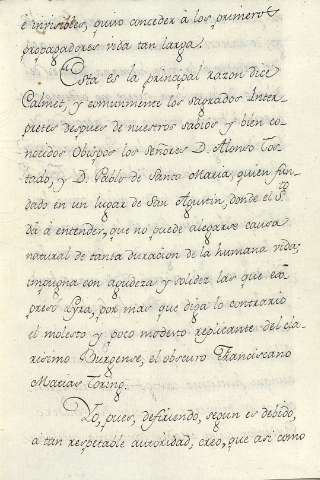 é invisibles, quiso conceder á los primeros
propagadores vida tan larga!
"Esta es la principal razon dice
Calmet, y comunmente los sagrados Inter-
pretes despues de nuestros sabios y bien co-
nocidos Obispos los Señores D. Alonso Tos-
tado, y D. Pablo de Santa Maria, quien fun-
dado en un lugar de San Agustin, donde el Sto
dá á entender, que no puede alegarse causa
natural de tanta duracion de la humana vida;
impugna con agudeza y solidez las que ex-
presó Lyra, por mas que diga lo contrario
el molesto y poco modesto replicante del cla-
risimo Burgense, el obscuro Franciscano
Matias Toring.
Yo, pues, defiriendo, segun es debido,
a tan respetable autoridad, creo, que asi como